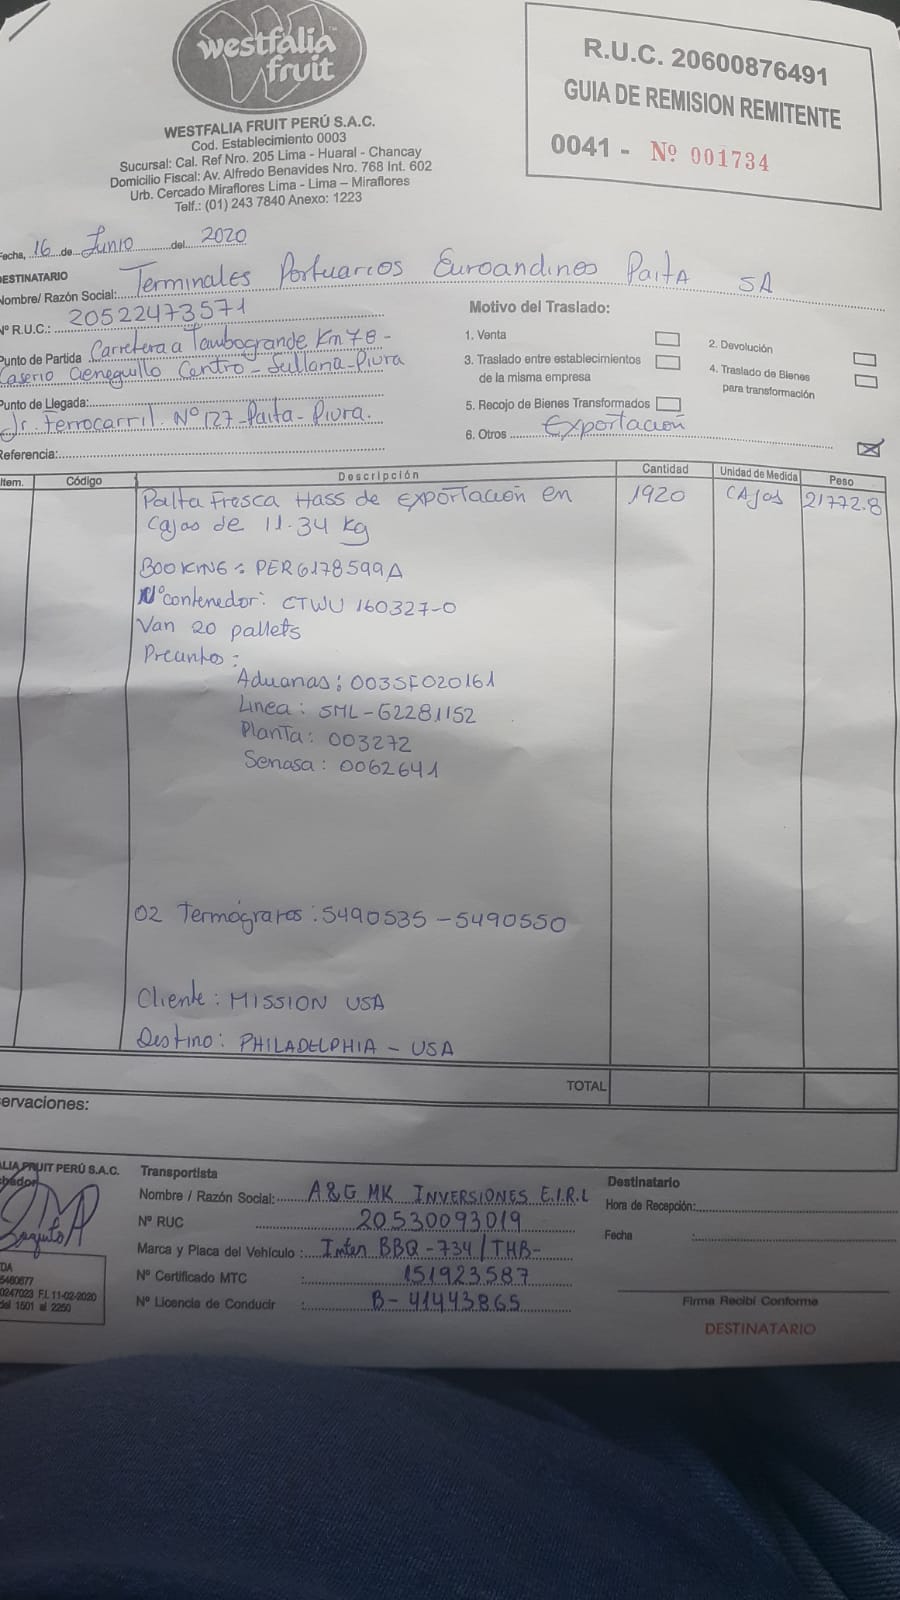 westfalia
fruit
WESTFALIA FRUIT PERÚ S.A.C.
Cod. Establecimiento 0003
Sucursal: Cal. Ref Nro. 205 Lima - Huaral - Chancay
Domicilio Fiscal: Av. Alfredo Benavides Nro. 768 Int. 602
Urb. Cercado Miraflores Lima - Lima – Miraflores
Telf.: (01) 243 7840 Anexo: 1223
R.U.C. 20600876491
GUIA DE REMISION REMITENTE
0041 - Nº 001734
Fecha, 16 de Junio del 2020
DESTINATARIO
Nombre/ Razón Social: Terminales Portuarios Euroandinos Paita SA
Nº R.U.C.: 20522473571
Punto de Partida Carretera a Tambogrande Km 78 -
Caserio Cieneguillo Centro - Sullana - Piura
Punto de Llegada:
Jr. Ferrocarril Nº 127 - Paita - Piura.
Referencia:
Motivo del Traslado:
1. Venta
2. Devolución
3. Traslado entre establecimientos
de la misma empresa
4. Traslado de Bienes
para transformación
5. Recojo de Bienes Transformados
6. Otros Exportación
Item. Código Descripción Cantidad Unidad de Medida Peso
Palta Fresca Hass de Exportación en 1920 Cajas 21772.8
Cajas de 11.34 kg
BOOKING: PER6178599A
Nº contenedor: CTWU 160327-0
Van 20 pallets
Precintos:
Aduanas: 003SF020161
Linea: SML-G2281152
Planta: 003272
Senasa: 0062641
02 Termógrafos: 5490535 - 5490550
Cliente: MISSION USA
Destino: PHILADELPHIA - USA
TOTAL
ervaciones:
ALIA FRUIT PERÚ S.A.C.
Transportista
Nombre / Razón Social: A&G MK INVERSIONES E.I.R.L
Nº RUC 20530093019
Marca y Placa del Vehículo: Inter BBQ-734/THB-
Nº Certificado MTC : 151923587
Nº Licencia de Conducir : B-41443865
Destinatario
Hora de Recepción:
Fecha :
Firma Recibí Conforme
DESTINATARIO
5460877
0247023 F.I. 11-02-2020
del 1501 al 2250